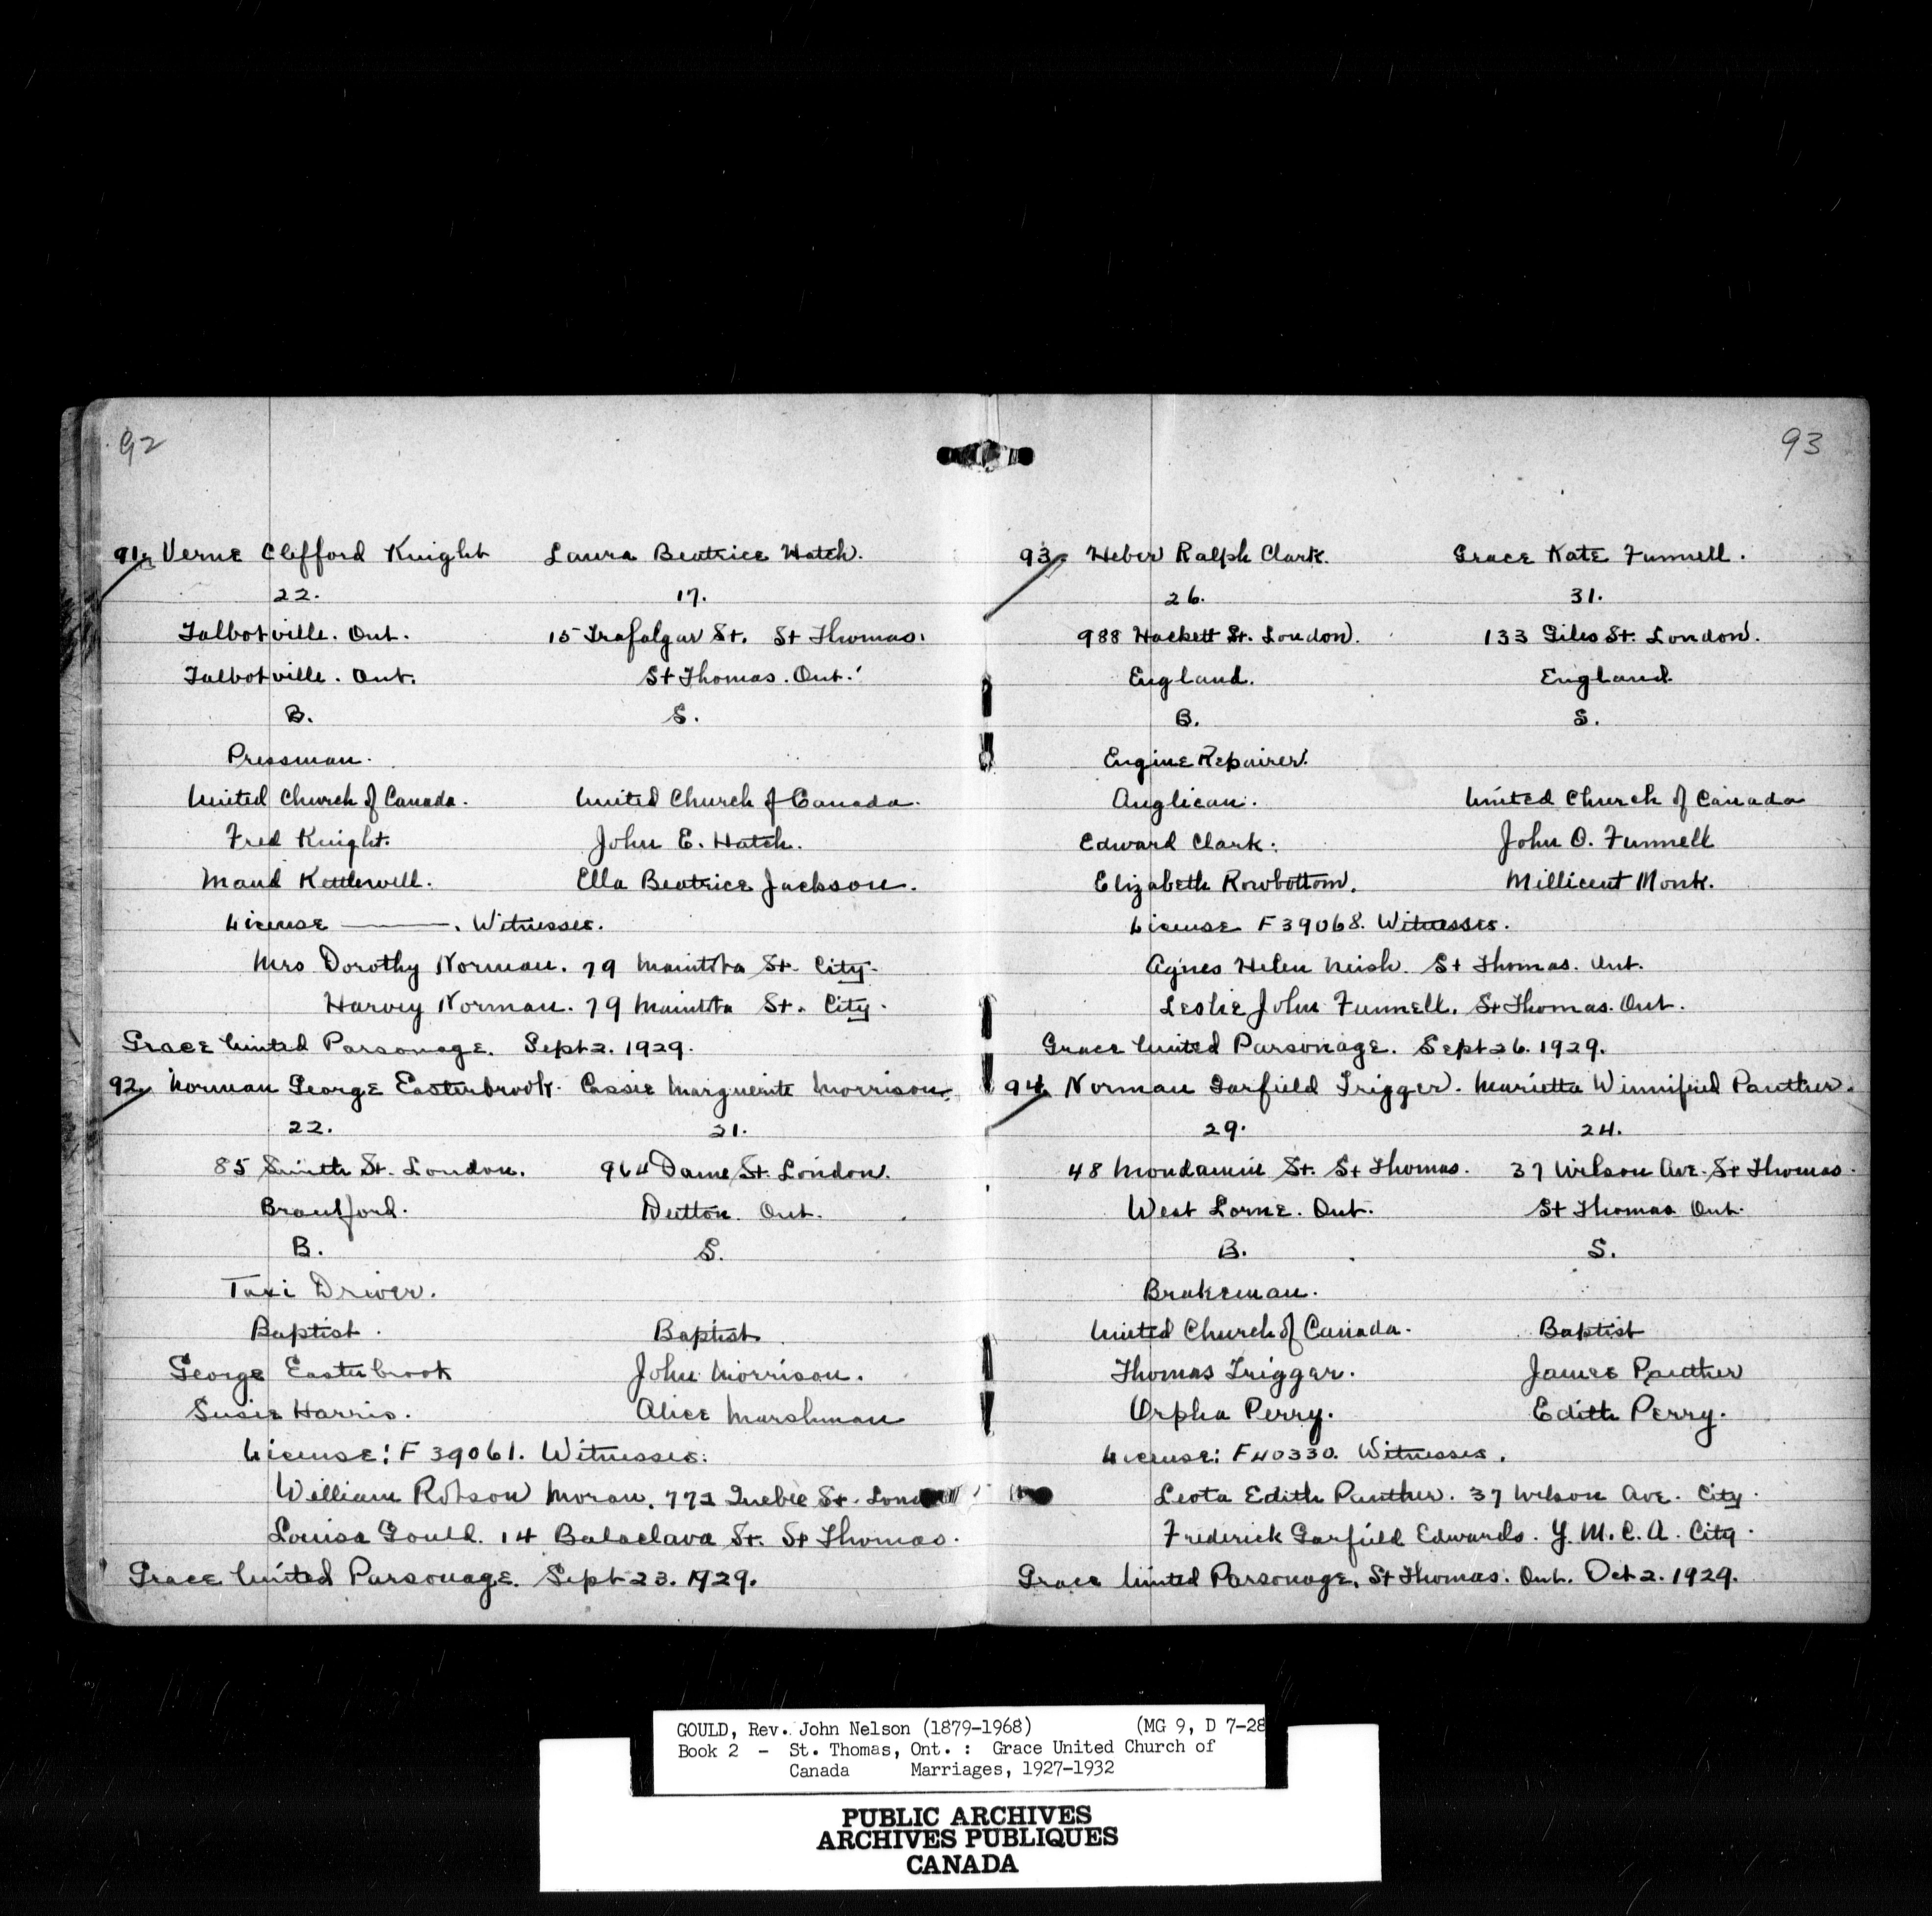 92
91. Verne Clifford Knight Laura Beatrice Hatch.
22. 17.
Talbotville. Ont. 15 Trafalgar St. St Thomas.
Talbotville. Ont. St Thomas. Ont.
B. S.
Pressman.
United Church of Canada. United Church of Canada.
Fred Knight. John E. Hatch.
Maud Kettlewell. Ella Beatrice Jackson.
License ———. Witnesses.
Mrs Dorothy Norman. 79 Manitoba St. City.
Harvey Norman. 79 Manitoba St. City.
Grace United Parsonage. Sept 2. 1929.
92. Norman George Easterbrook. Cassie Marguerite Morrison.
22. 21.
85 Smith St. London. 964 Dame St. London.
Brantford. Dutton. Ont.
B. S.
Taxi Driver.
Baptist. Baptist.
George Easterbrook John Morrison.
Susie Harris. Alice Marshman
License: F 39061. Witnesses:
William Robson Moran. 772 Quebec St.
Louisa Gould. 14 Balaclava St. St Thomas.
Grace United Parsonage. Sept 23. 1929.
93
93. Heber Ralph Clark. Grace Kate Funnell.
26. 31.
988 Hackett St. London. 133 Giles St. London.
England. England
B. S.
Engine Repairer.
Anglican. United Church of Canada
Edward Clark. John O. Funnell
Elizabeth Rowbottom. Millicent Monk.
License F 39068. Witnesses.
Agnes Helen Neish. St Thomas. Ont.
Leslie John Funnell. St Thomas. Ont.
Grace United Parsonage. Sept 26. 1929.
94. Norman Garfield Trigger. Marietta Winnifred Panther.
29. 24.
48 Mondamin St. St Thomas. 37 Wilson Ave. St Thomas.
West Lorne. Ont. St Thomas Ont.
B. S.
Brakeman.
United Church of Canada. Baptist
Thomas Trigger. James Panther
Orpha Perry. Edith Perry.
License: F 40330. Witnesses.
Leota Edith Panther. 37 Wilson Ave. City.
Frederick Garfield Edwards. Y. M. C. A. City.
Grace United Parsonage, St Thomas. Ont. Oct 2. 1929.
GOULD, Rev. John Nelson (1879-1968) (MG 9, D 7-28
Book 2 - St. Thomas, Ont. : Grace United Church of
Canada Marriages, 1927-1932
PUBLIC ARCHIVES
ARCHIVES PUBLIQUES
CANADA